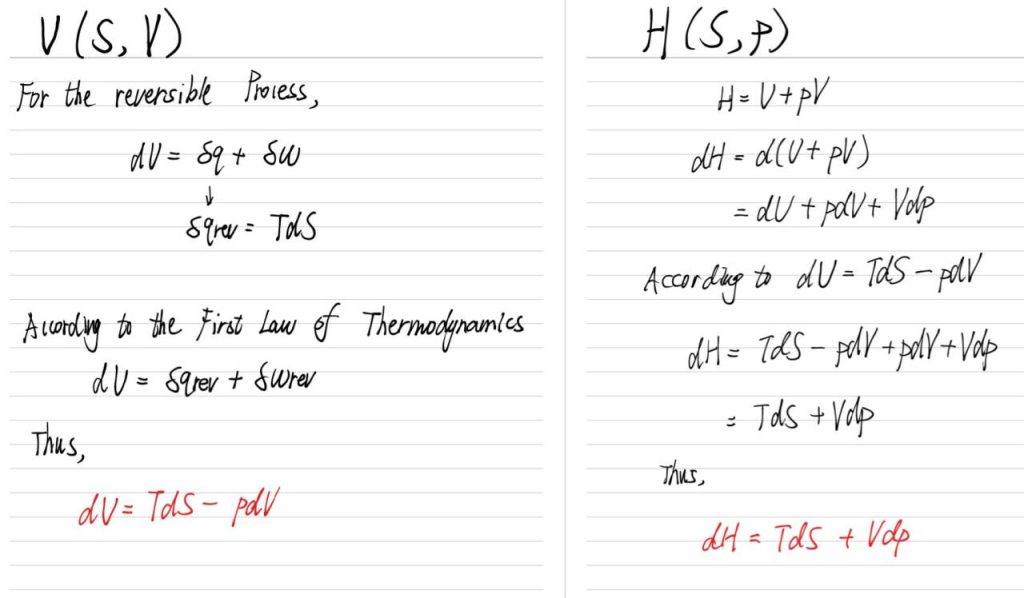 U(S, V)
For the reversible Process,
dU = δq + δw
↓
δqrev = TdS
According to the First Law of Thermodynamics
dU = δqrev + δwrev
Thus,
dU = TdS - pdV
H(S, p)
H = U + pV
dH = d(U + pV)
= dU + pdV + Vdp
According to dU = TdS - pdV
dH = TdS - pdV + pdV + Vdp
= TdS + Vdp
Thus,
dH = TdS + Vdp